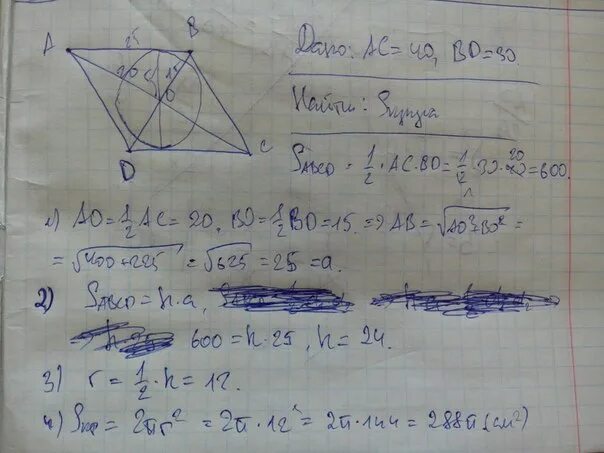 A 25 B
20 15
O
D C
Дано: AC=40, BD=30.
Найти: Sкруга
SABCD = 1/2 · AC · BD = 1/2 · 30 · 40 = 600.
20
1) AO = 1/2 AC = 20, BO = 1/2 BD = 15. => AB = √AO²+BO² =
= √400+225 = √625 = 25 = a.
2) SABCD = h·a,
600 = h·25, h = 24.
3) r = 1/2 · h = 12.
4) Sкр = 2πr² = 2π · 12² = 2π · 144 = 288π (см²)